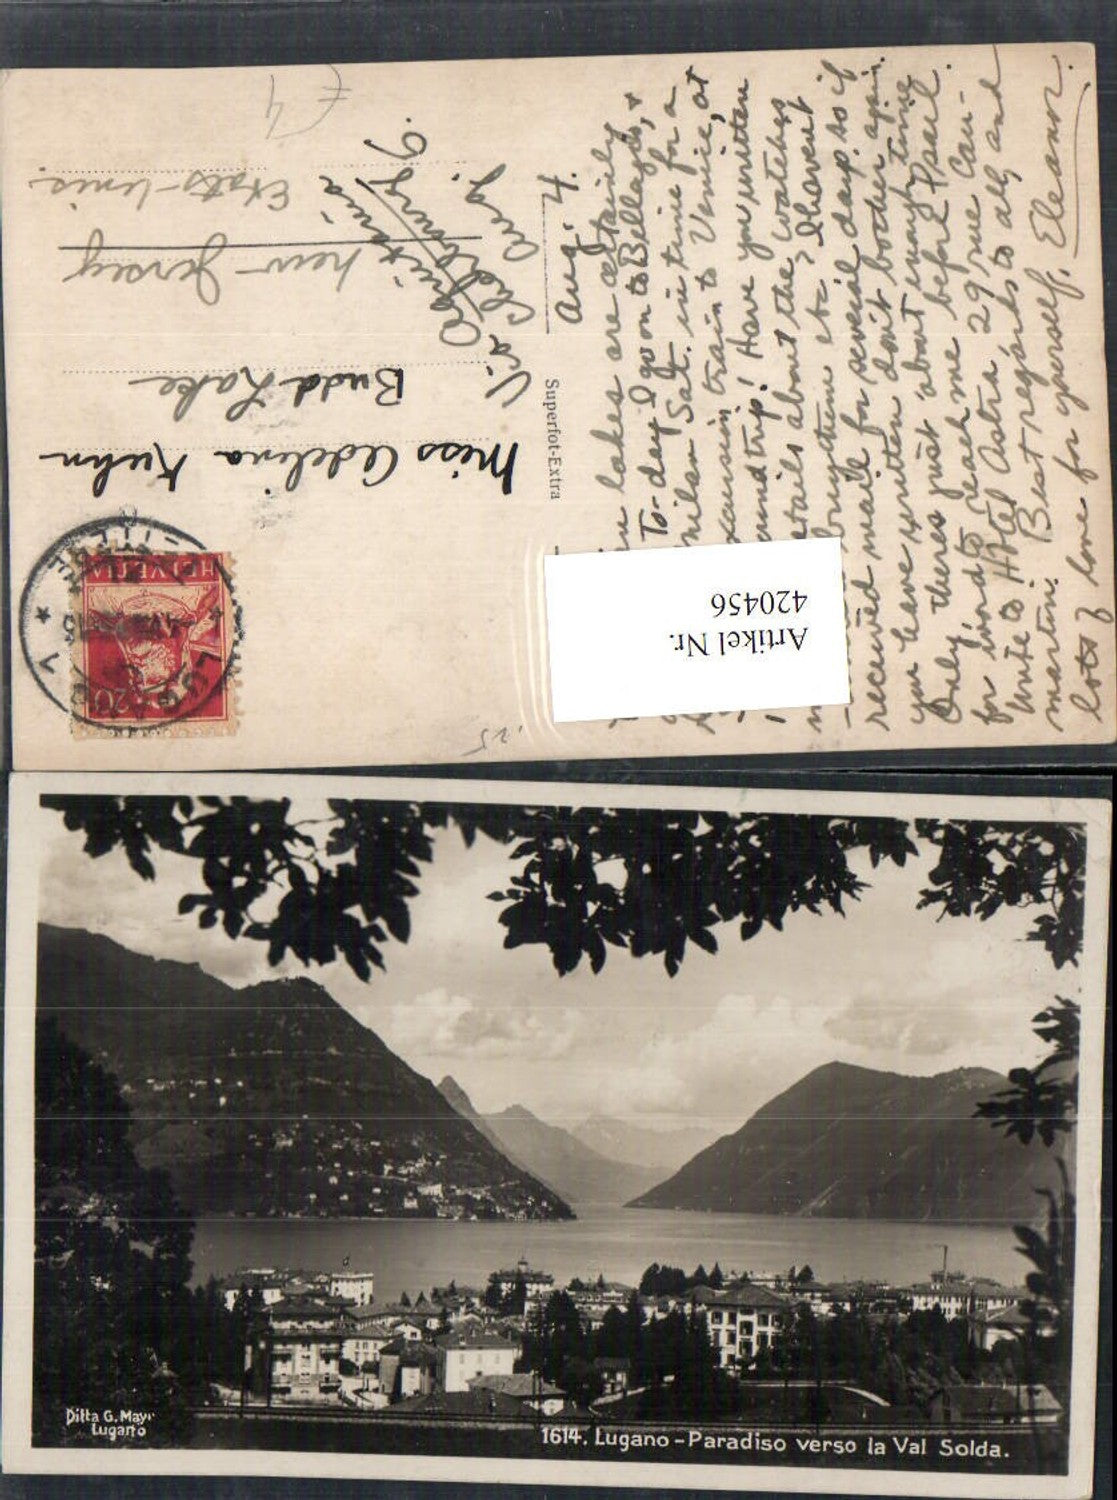 Aug. 4.
lakes are certainly
To-day I go on to Bellagio, &
Milan Sat. in time for a
excursion train to Venice, at
round trip! Have you written
details about the watches
etc? I haven't
received mail for several days so if
you have written don't bother again.
Only theres just about enough time
for word to reach me before Paris.
Write to Hotel Astra 29 rue Cau-
martin. Best regards to all, and
lots of love for yourself, Eleanor.
Superfot-Extra
Miss Adelina Kuhn
Budd Lake
New Jersey
Etats-Unis.
Via
Cherbourg
HELVETIA
20
LUGANO
Artikel Nr.
420456
.25
Ditta G. Mayr
Lugano
1614. Lugano-Paradiso verso la Val Solda.